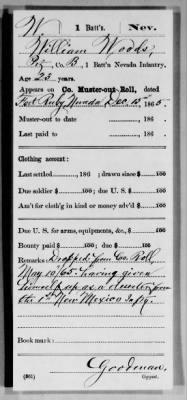 W | 1 Batt'n. | Nev.
William Woods,
Pvt., Co. B, 1 Batt'n Nevada Infantry.
Age 23 years.
Appears on Co. Muster-out Roll, dated
Fort Ruby, Nevada Dec. 15", 1865.
Muster-out to date , 186 .
Last paid to , 186 .
Clothing account:
Last settled , 186 ; drawn since $ 100
Due soldier $ 100 ; due U. S. $ 100
Am't for cloth'g in kind or money adv'd $ 100
Due U. S. for arms, equipments, &c., $ 100
Bounty paid $ 100 ; due $ 100
Remarks: Dropped from Co. Roll
May 10/65 having given
himself up as a deserter from
the 1st New Mexico Infty.
Book mark:
Goodman,
(361) Copyist.